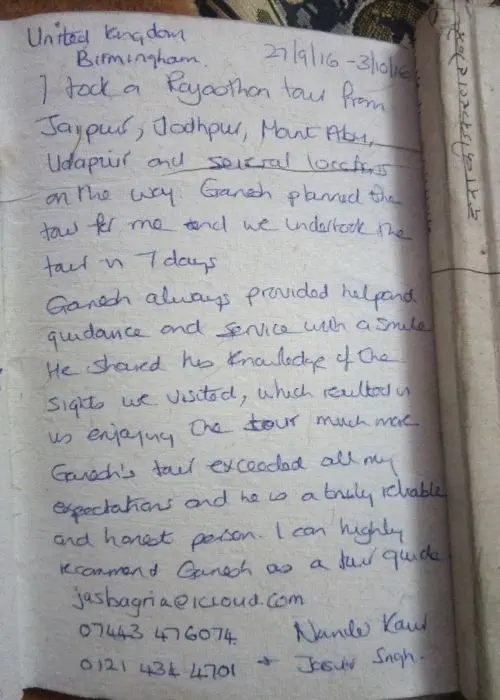 United Kingdom
Birmingham. 27/9/16 - 3/10/16
I took a Rajasthan tour from
Jaipur, Jodhpur, Mont Abu,
Udaipur and several locations
on the way. Ganesh planned the
tour for me and we undertook the
tour in 7 days
Ganesh always provided help and
guidance and service with a smile
He shared his knowledge of the
sights we visited, which resulted in
us enjoying the tour much more
Ganesh's tour exceeded all my
expectations and he is a truly reliable
and honest person. I can highly
recommend Ganesh as a tour guide
jasbagria@icloud.com
07443 476074 Kaur
0121 434 4701 + Singh.